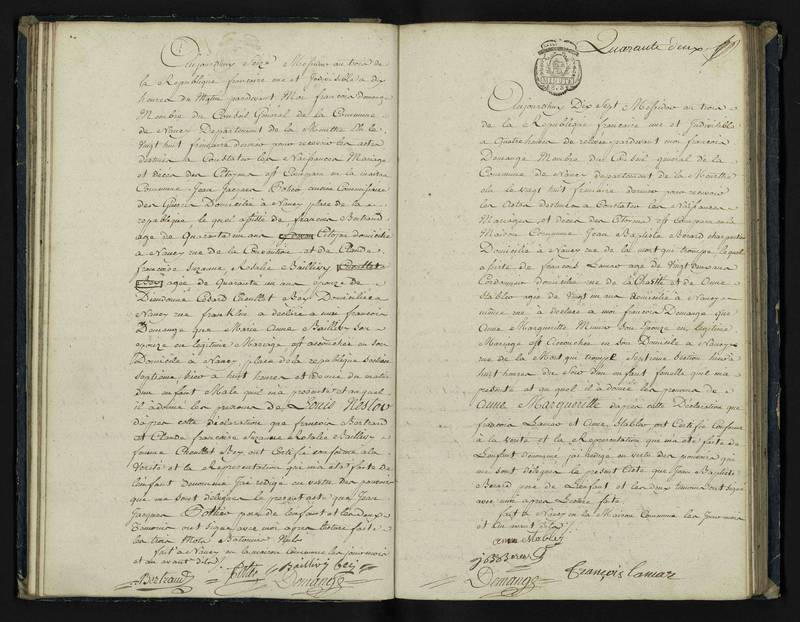 Aujourdhuy Seize Messidor an trois de
la Republique francoise une et Indivisible a dix
heures du Matin pardevant Moi francois domange
Membre du Conseil General de la Commune
de Nancy Departement de la Meurthe Elu le
Vingt huit frimaire dernier pour recevoir les actes
destinés a Constater les Naissances Mariage
et décès des Citoyens est Comparu en la maison
Commune Jean Jacques Pothier
des Guerres Domicilié à Nancy place de la
republique le quel assisté de francois Bertrand
age de Quarante un ans Citoyen domicilié
a Nancy rue de la Constitution et de Claude
francoise Suzanne Rosalie Baillivy
agee de Quarante un ans Epouse de
Dieudonné Chouillet Bey Domiciliée a
Nancy rue franklin a déclaré a moi francois
Domange que Marie Anne Baillivy Son
epouse en legitime Mariage est accouchée en son
Domicile à Nancy place de la republique Section
Septieme, hier a huit heures et demie du matin
dun enfant Male quil ma presenté et auquel
il a donné les prenoms de Louis Nestor
dapres cette déclaration que francois Bertrand
et Claude francoise Suzanne Rosalie Baillivy
femme Chouillet Bey ont Certifié conforme ala
Verité et la Representation qui ma eté faite de
Lenfant Denommé Jai redigé en vertu des pouvoirs
qui me sont délegués le present acte que Jean
Jacques Pothier pere de lenfant et les deux
Temoins ont Signé avec moi apres lecture faite
les trois Mots Batonnés Nuls
fait a Nancy en la maison Commune les jour mois
et an avant dits
Bertrand Pothie Baillivy Bey
Domange
Quarante deux
Aujourdhuy Dix Sept Messidor an trois
de la Republique francoise une et Indivisible
a Quatre heures de relevé pardevant moi francois
Domange Membre du Conseil general de la
Commune de Nancy departement de la Meurthe
elu le vingt huit frimaire dernier pour recevoir
les Actes destinés a Constater les Naissances
Mariages et décès des Citoyens est Comparu en la
Maison Commune Jean Baptiste Berard charpentier
Domicilié a Nancy rue de la mort qui trompe lequel
assisté de francois Lamar age de Vingt deux ans
Cordonnier domicilié rue de la Charité et de Anne
Stabler agée de Vingt un ans domiciliée a Nancy
même rue a declaré a moi francois Domange que
Anne Margueritte son Epouse en legitime
Mariage est accouchée en son Domicile a Nancy
rue de la Mort qui trompe Septieme Section hier a
huit heures du Soir dun enfant femelle quil ma
presenté et auquel il a donné les prenoms de
Anne Margueritte dapres cette Declaration que
francois Lamar et Anne Stabler ont Certifié Conforme
à la verité et la Representation qui ma eté faite de
Lenfant denommé, jai redigé en vertu des pouvoirs qui
me sont délegués le present Acte que Jean Baptiste
Berard pere de Lenfant et les deux temoins ont signé
avec moi apres Lecture faite.
fait à Nancy en la Maison Commune les Jour mois
et an avant dits
anne Stabler
Domange François Lamar